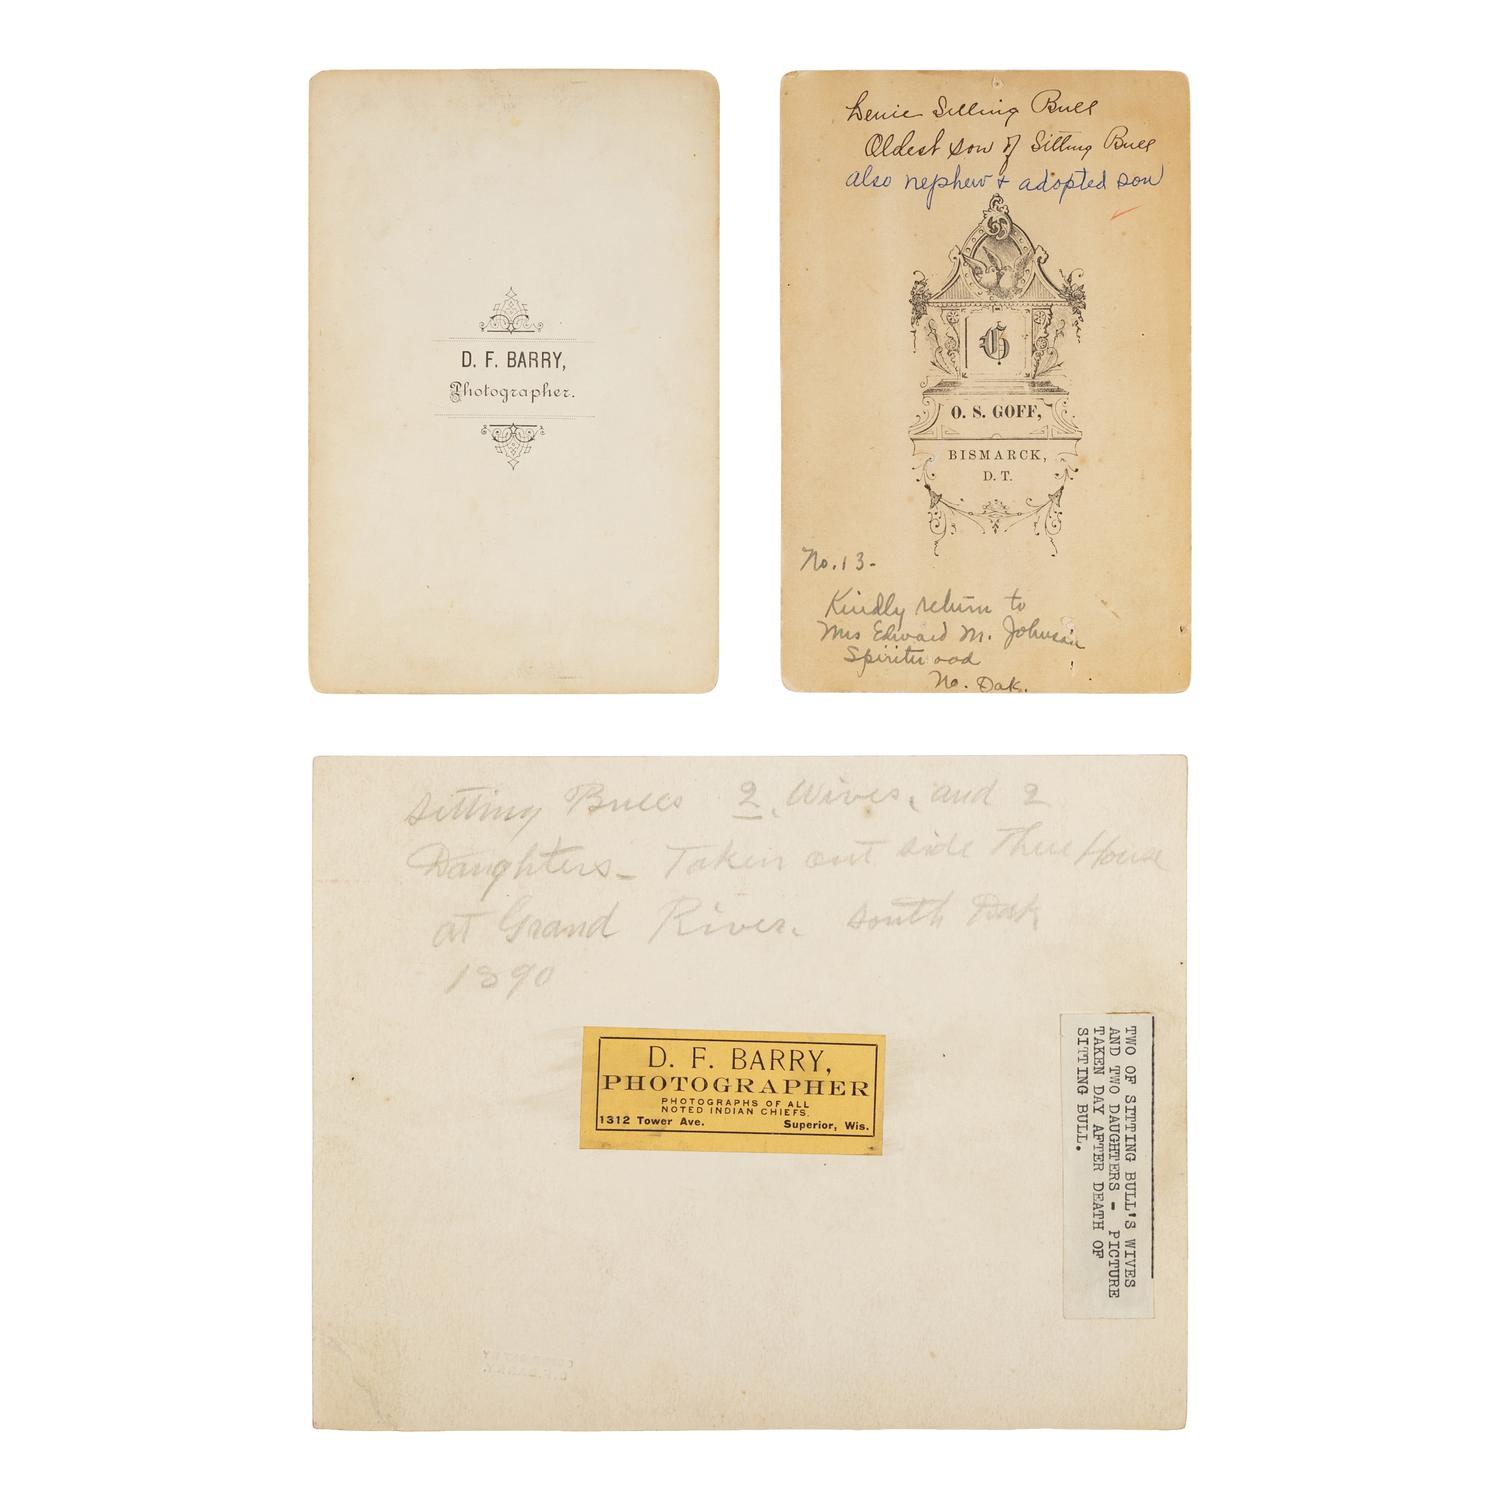 D. F. BARRY,
Photographer.
Sitting Bull
Oldest son of Sitting Bull
also nephew + adopted son
G
O. S. GOFF,
BISMARCK,
D. T.
No. 13-
Kindly return to
Mrs Edward M. Johnson
Spiritwood
No. Dak.
Sitting Bulls 2 Wives, and 2
Daughters - Taken out side House
at Grand River. South Dak
1890
D. F. BARRY,
PHOTOGRAPHER
PHOTOGRAPHS OF ALL
NOTED INDIAN CHIEFS.
1312 Tower Ave. Superior, Wis.
TWO OF SITTING BULL'S WIVES
AND TWO DAUGHTERS - PICTURE
TAKEN DAY AFTER DEATH OF
SITTING BULL.